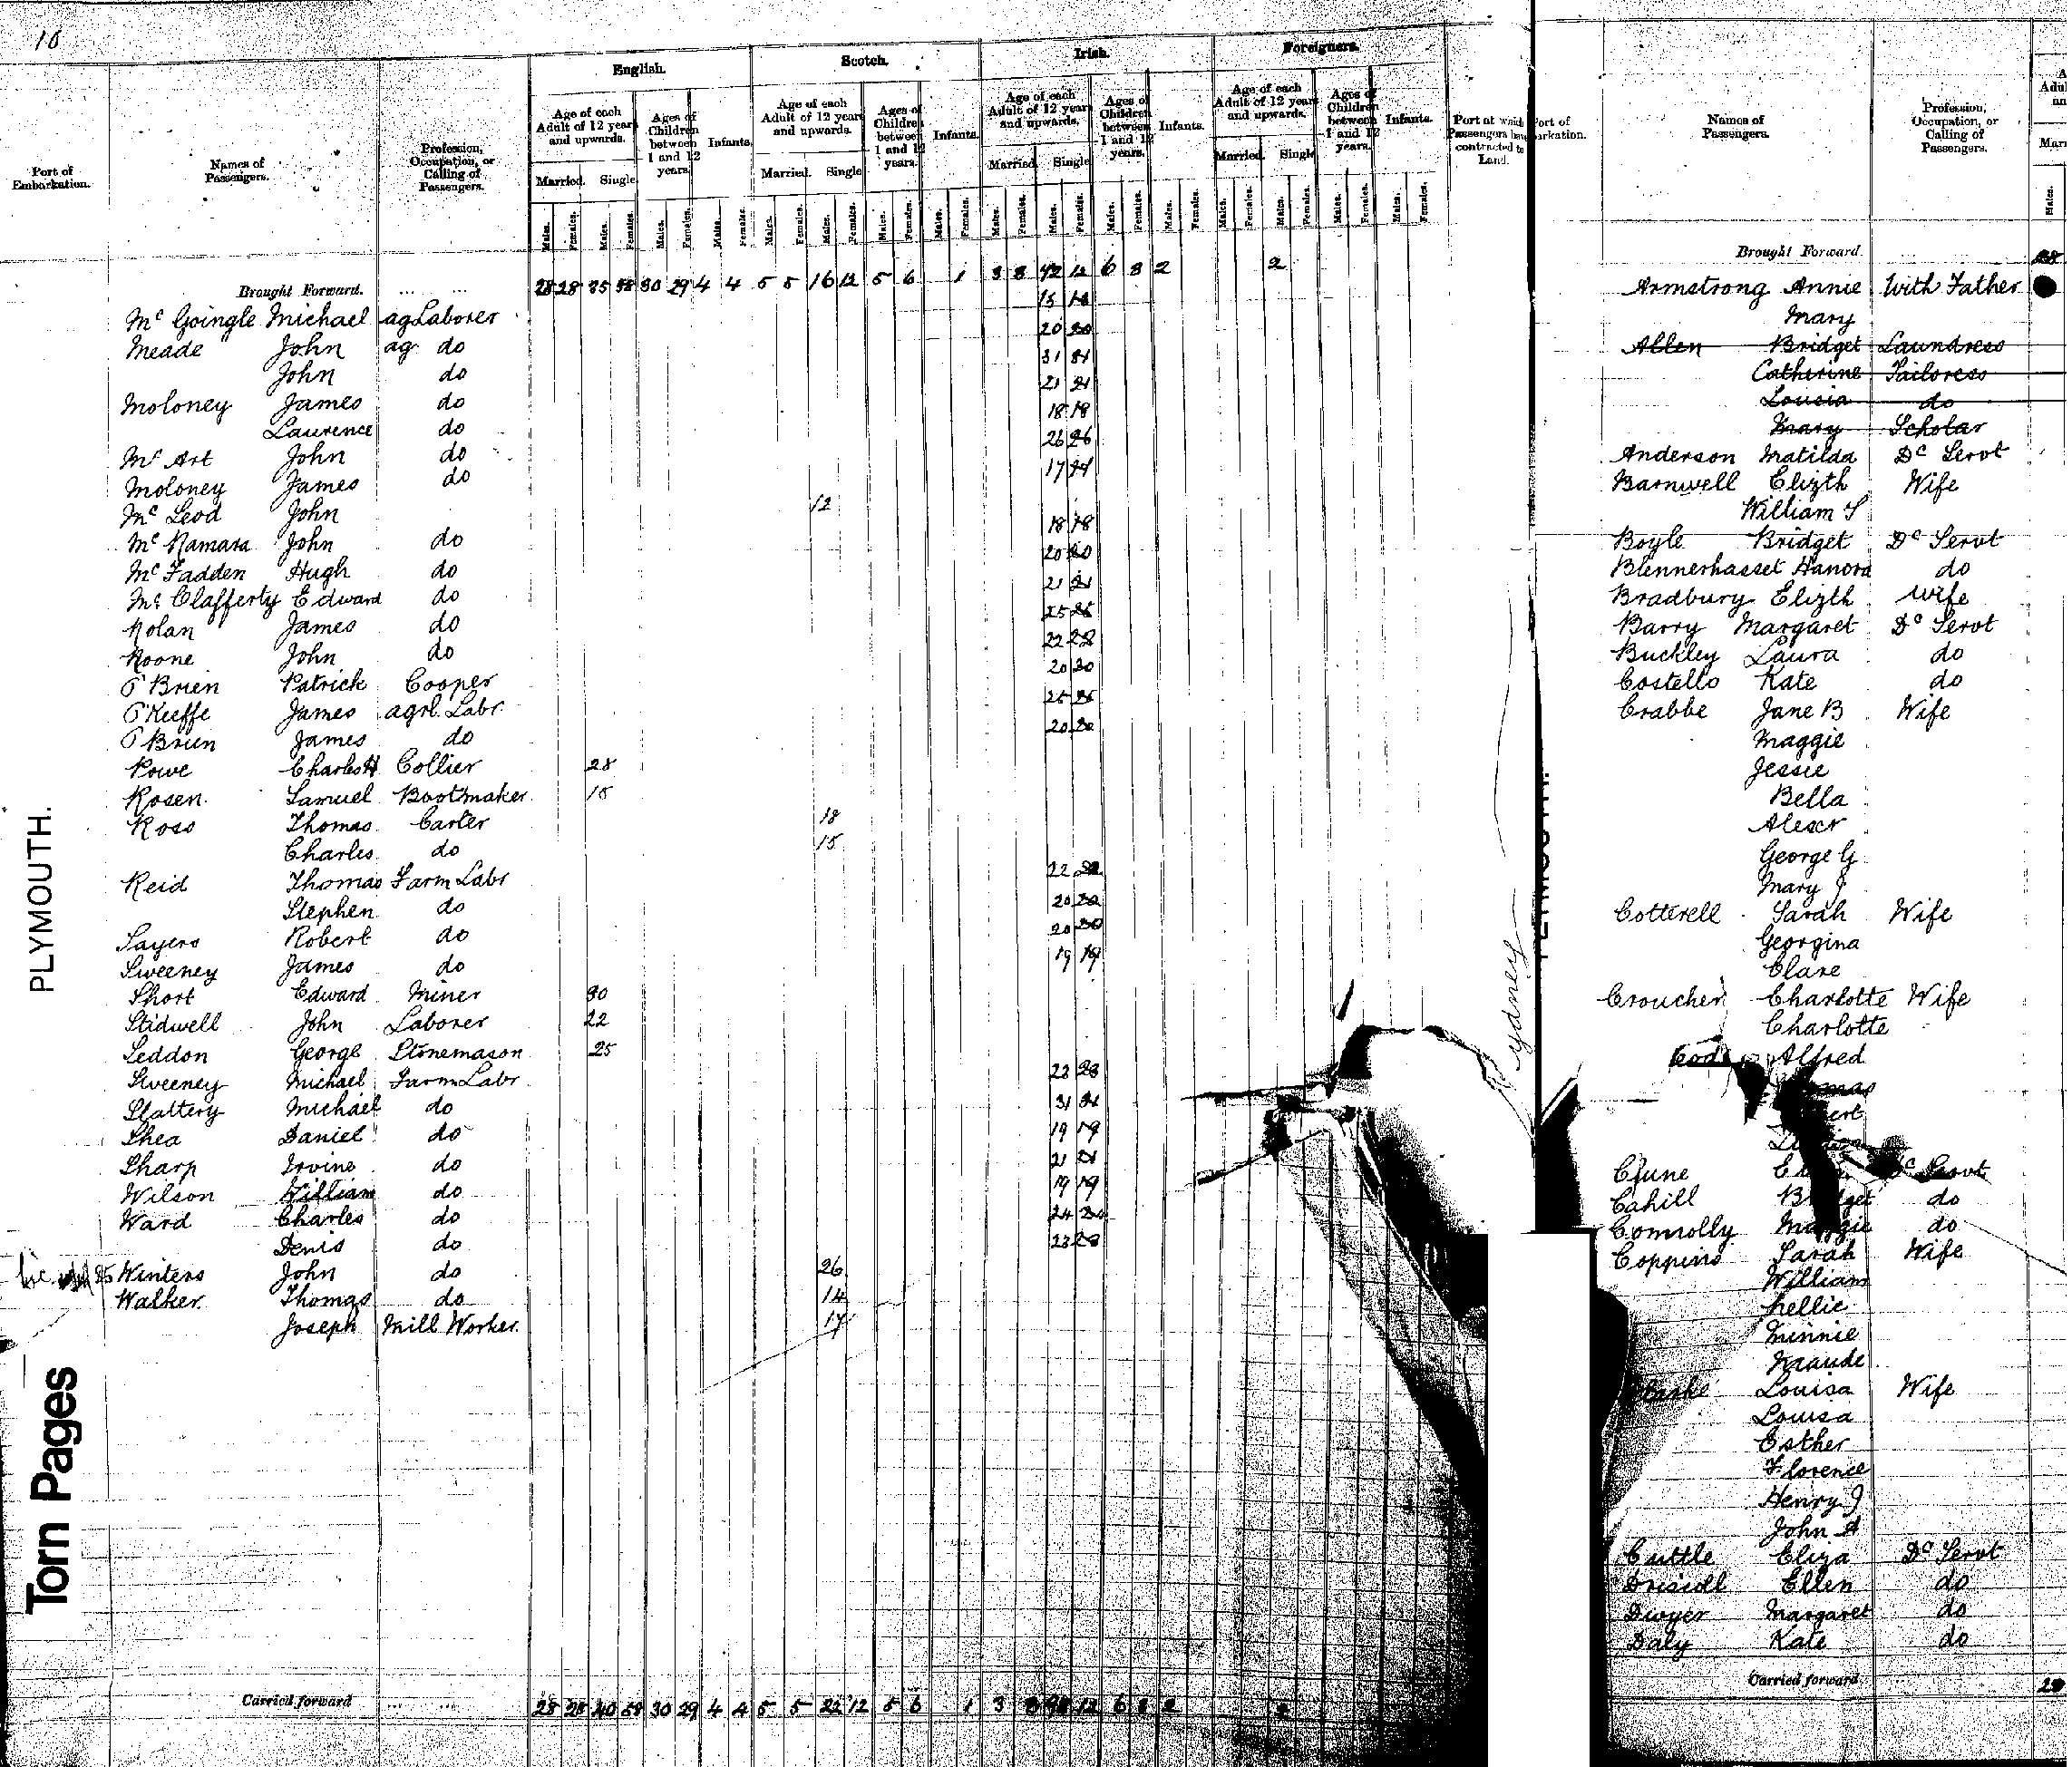 10
English. Scotch. Irish. Foreigners.
Port of Embarkation. Names of Passengers. Profession, Occupation, or Calling of Passengers. Age of each Adult of 12 years and upwards. Ages of Children between 1 and 12 years. Infants. Age of each Adult of 12 years and upwards. Ages of Children between 1 and 12 years. Infants. Age of each Adult of 12 years and upwards. Ages of Children between 1 and 12 years. Infants. Age of each Adult of 12 years and upwards. Ages of Children between 1 and 12 years. Infants. Port at which Passengers have contracted to Land.
Married. Single Married. Single Married. Single Married. Single
Males. Females. Males. Females. Males. Females. Males. Females. Males. Females. Males. Females. Males. Females. Males. Females. Males. Females. Males. Females. Males. Females. Males. Females. Males. Females. Males. Females. Males. Females. Males. Females.
Brought Forward. 28 28 35 58 30 29 4 4 5 5 16 12 5 6 1 3 8 42 12 6 8 2 2
Mc Goingle Michael ag Laborer 15
Meade John ag do 20
John do 31
Moloney James do 21
Laurence do 18
Mc Art John do 26
Moloney James do 17
Mc Leod John 12
Mc Namara John do 18
Mc Fadden Hugh do 20
Mc Clafferty Edward do 21
Nolan James do 25
Noone John do 22
O'Brien Patrick Cooper 20
O'Keeffe James agrl. Labr. 25
O'Brien James do 20
Rowe Charles H Collier 28
Rosen Samuel Bootmaker 15
Ross Thomas Carter 18
Charles do 15
Reid Thomas Farm Labr 22
Stephen do 20
Sayers Robert do 20
Sweeney James do 19
Short Edward Miner 30
Stidwell John Laborer 22
Seddon George Stonemason 25
Sweeney Michael Farm Labr 23
Slattery Michael do 31
Shea Daniel do 19
Sharp Irvine do 21
Wilson William do 19
Ward Charles do 24
Denis do 23
Winters John do 26
Walker Thomas do 14
Joseph Mill Worker 17
Carried forward 28 28 40 58 30 29 4 4 5 5 22 12 5 6 1 3 8 12 6 8 2 2
PLYMOUTH.
Torn Pages
Sydney
Port of Embarkation. Names of Passengers. Profession, Occupation, or Calling of Passengers.
Males.
Brought Forward. 28
Armstrong Annie With Father
Mary
Allen Bridget Laundress
Catherine Tailoress
Lousia do
Mary Scholar
Anderson Matilda Dc Servt
Barnwell Elizth Wife
William S
Boyle Bridget Dc Servt
Blennerhasset Hanora do
Bradbury Elizth Wife
Barry Margaret Dc Servt
Buckley Laura do
Costello Kate do
Crabbe Jane B Wife
Maggie
Jessie
Bella
Alexr
George G
Mary J
Cotterell Sarah Wife
Georgina
Clare
Croucher Charlotte Wife
Charlotte
Alfred
Clune Dc Servt
Cahill Bridget do
Connolly Maggie do
Coppins Sarah Wife
William
Nellie
Minnie
Maude
Louisa Wife
Louisa
Esther
Florence
Henry J
John A
Cuttle Eliza Dc Servt
Driscoll Ellen do
Dwyer Margaret do
Daly Kate do
Carried forward